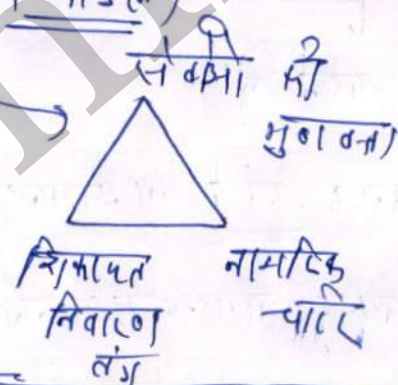 सेवाओं की
गुणवत्ता
शिकायत
निवारण
तंत्र
नागरिक
चार्टर